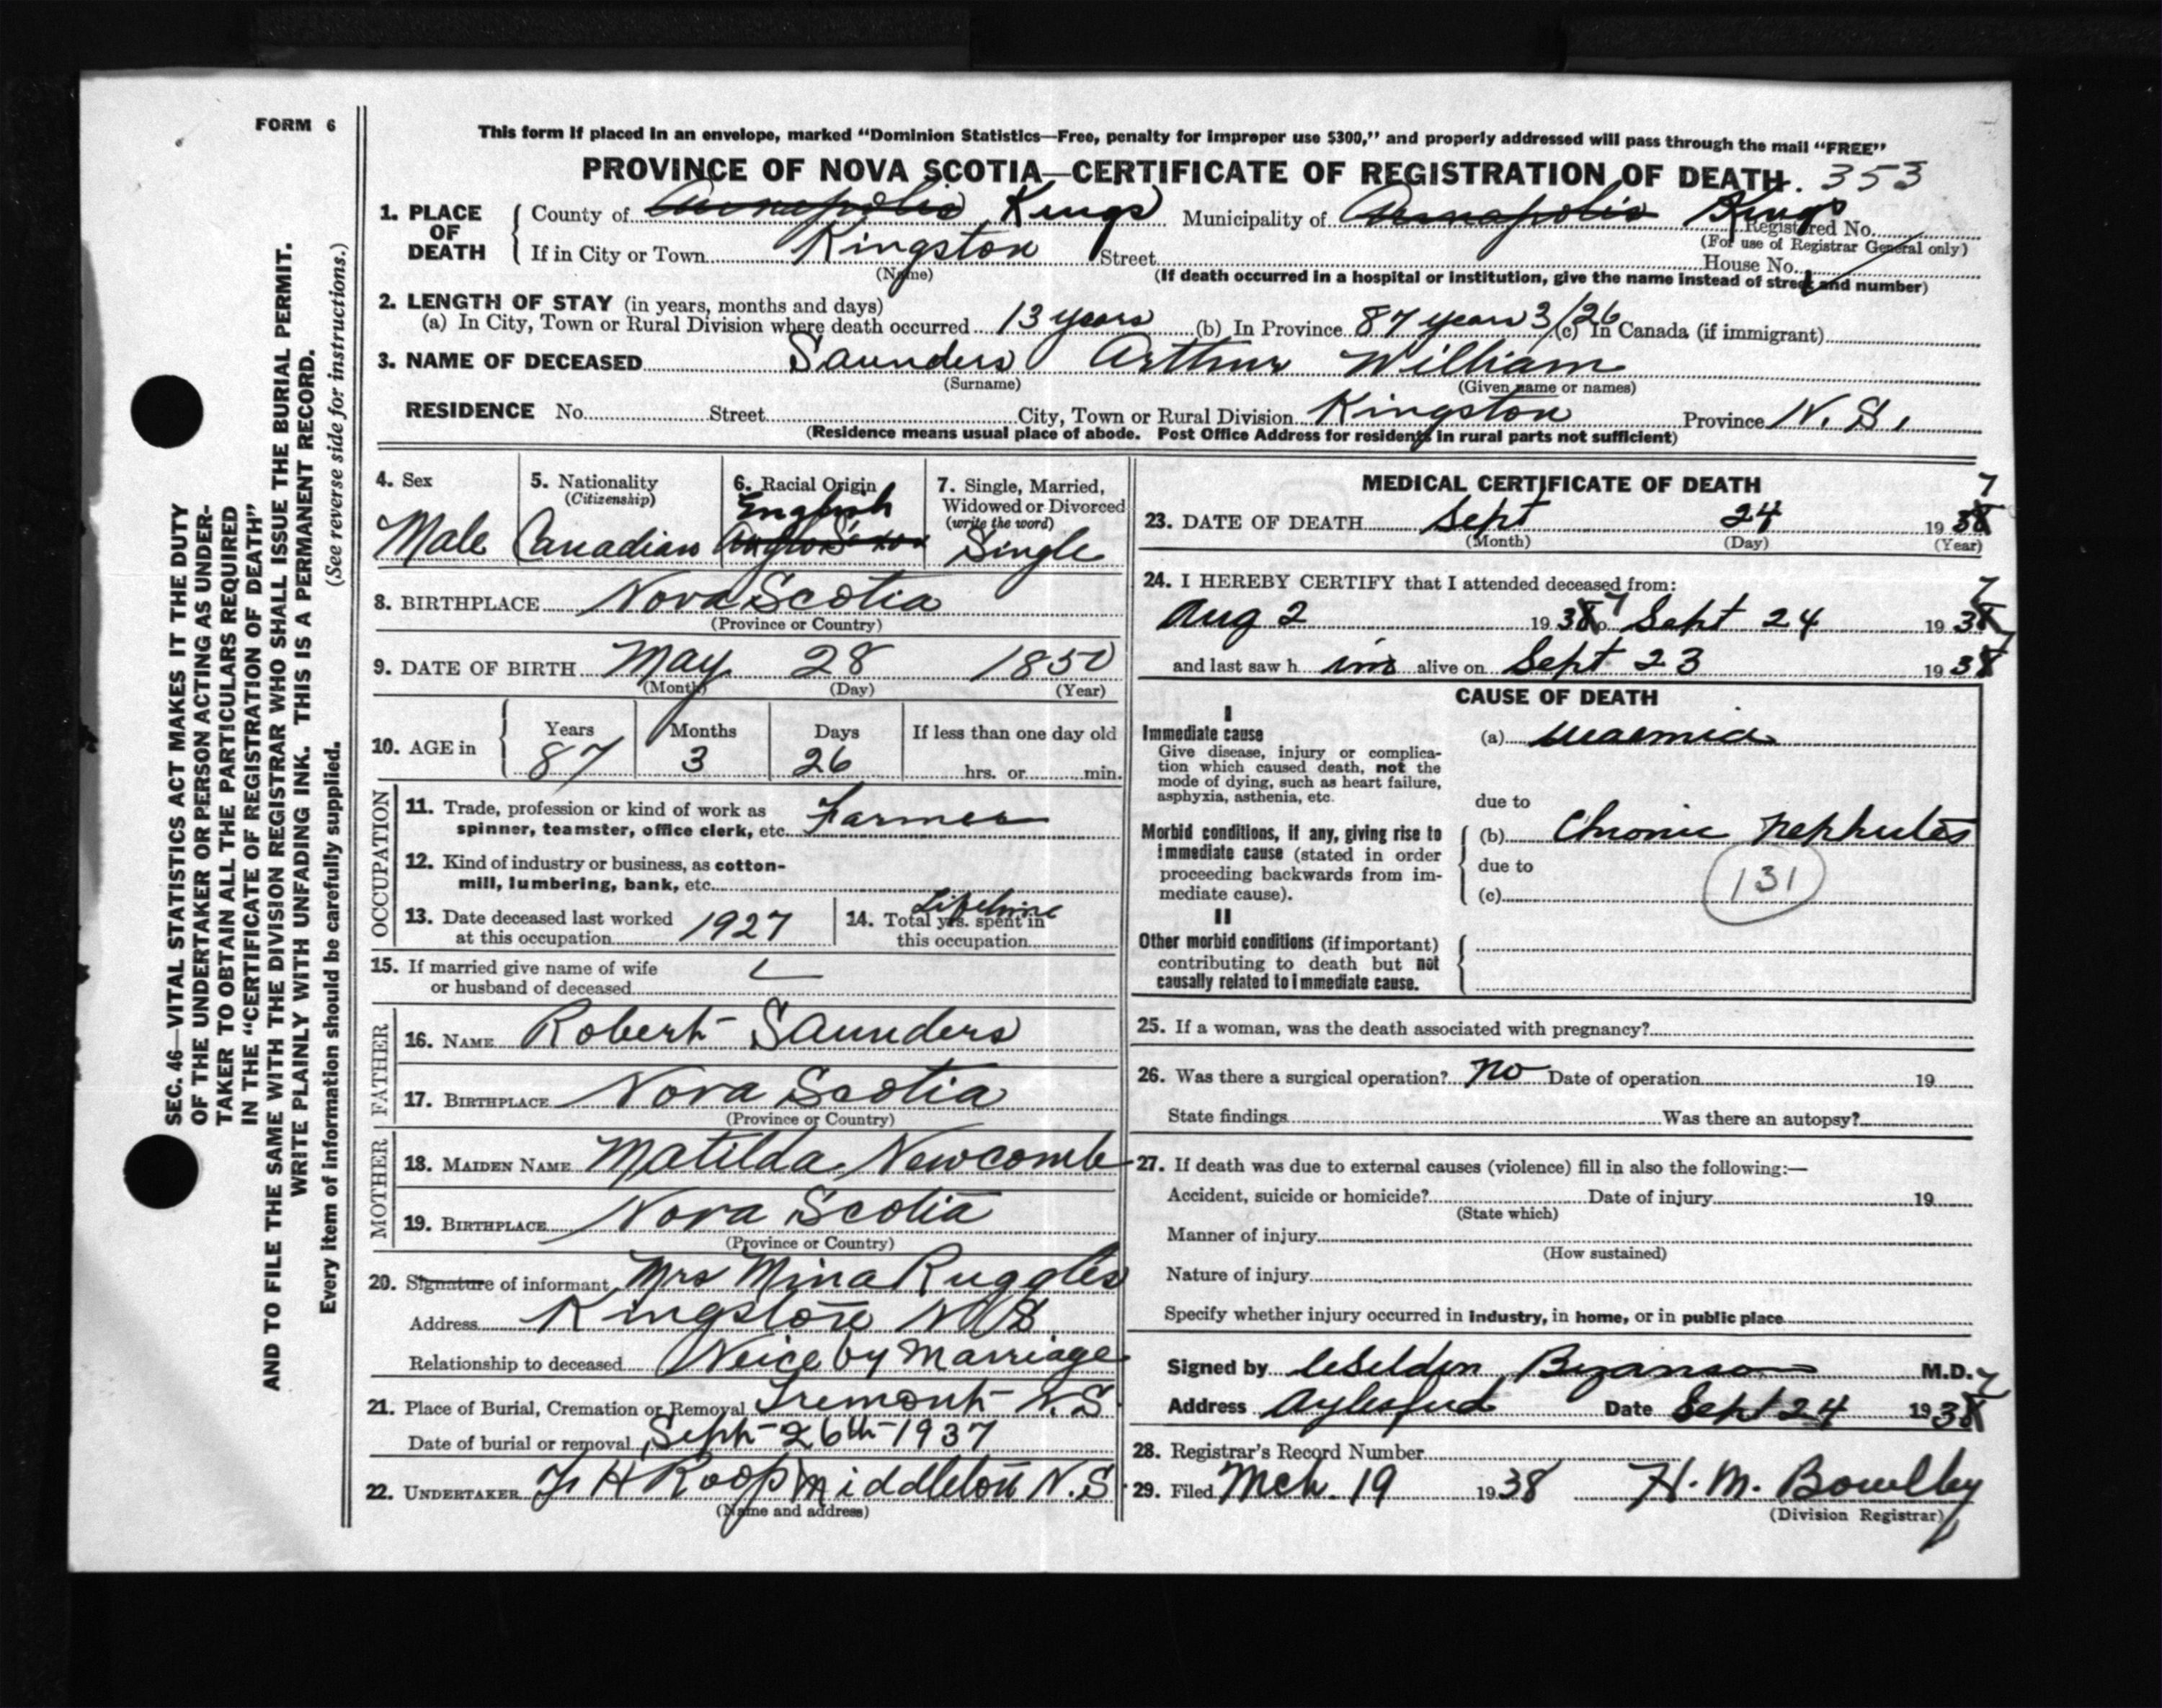 FORM 6
This form if placed in an envelope, marked "Dominion Statistics—Free, penalty for improper use $300," and properly addressed will pass through the mail "FREE"
PROVINCE OF NOVA SCOTIA—CERTIFICATE OF REGISTRATION OF DEATH. 353
1. PLACE OF DEATH
County of Annapolis Kings Municipality of Annapolis Kings
Registered No.
(For use of Registrar General only)
If in City or Town Kingston Street House No.
(Name)
(If death occurred in a hospital or institution, give the name instead of street and number)
2. LENGTH OF STAY (in years, months and days)
(a) In City, Town or Rural Division where death occurred 13 years (b) In Province 87 years 3/26 (c) In Canada (if immigrant)
3. NAME OF DECEASED Saunders Arthur William
(Surname) (Given name or names)
RESIDENCE No. Street City, Town or Rural Division Kingston Province N.S.
(Residence means usual place of abode. Post Office Address for residents in rural parts not sufficient)
4. Sex
Male
5. Nationality
(Citizenship)
Canadian
6. Racial Origin
English
Anglo Saxon
7. Single, Married,
Widowed or Divorced
(write the word)
Single
8. BIRTHPLACE Nova Scotia
(Province or Country)
9. DATE OF BIRTH May 28 1850
(Month) (Day) (Year)
10. AGE in
Years Months Days If less than one day old
87 3 26 hrs. or min.
OCCUPATION
11. Trade, profession or kind of work as
spinner, teamster, office clerk, etc. Farmer
12. Kind of industry or business, as cotton-
mill, lumbering, bank, etc.
13. Date deceased last worked
at this occupation 1927
14. Total yrs. spent in
this occupation Lifetime
15. If married give name of wife
or husband of deceased
FATHER
16. NAME Robert Saunders
17. BIRTHPLACE Nova Scotia
(Province or Country)
MOTHER
18. MAIDEN NAME Matilda Newcomb
19. BIRTHPLACE Nova Scotia
(Province or Country)
20. Signature of informant Mrs Mina Ruggles
Address Kingston N S
Relationship to deceased Neice by Marriage
21. Place of Burial, Cremation or Removal Tremont N.S
Date of burial or removal Sept 26th 1937
22. UNDERTAKER H Roop Middleton N.S
(Name and address)
MEDICAL CERTIFICATE OF DEATH
23. DATE OF DEATH Sept 24 1938 7
(Month) (Day) (Year)
24. I HEREBY CERTIFY that I attended deceased from:
Aug 2 1938 7 to Sept 24 1938 7
and last saw him alive on Sept 23 1938 7
CAUSE OF DEATH
I
Immediate cause
Give disease, injury or complica-
tion which caused death, not the
mode of dying, such as heart failure,
asphyxia, asthenia, etc.
(a) uraemia
due to
Morbid conditions, if any, giving rise to
immediate cause (stated in order
proceeding backwards from im-
mediate cause).
(b) Chronic nephritis
due to
131
(c)
II
Other morbid conditions (if important)
contributing to death but not
causally related to immediate cause.
25. If a woman, was the death associated with pregnancy?
26. Was there a surgical operation? no Date of operation 19
State findings Was there an autopsy?
27. If death was due to external causes (violence) fill in also the following:—
Accident, suicide or homicide? Date of injury 19
(State which)
Manner of injury
(How sustained)
Nature of injury
Specify whether injury occurred in industry, in home, or in public place
Signed by M.D.
Address Aylesford Date Sept 24 1938 7
28. Registrar's Record Number
29. Filed Mch. 19 1938 H. M. Bowlby
(Division Registrar)
SEC. 46—VITAL STATISTICS ACT MAKES IT THE DUTY
OF THE UNDERTAKER OR PERSON ACTING AS UNDER-
TAKER TO OBTAIN ALL THE PARTICULARS REQUIRED
IN THE "CERTIFICATE OF REGISTRATION OF DEATH"
AND TO FILE THE SAME WITH THE DIVISION REGISTRAR WHO SHALL ISSUE THE BURIAL PERMIT.
WRITE PLAINLY WITH UNFADING INK. THIS IS A PERMANENT RECORD.
Every item of information should be carefully supplied. (See reverse side for instructions.)